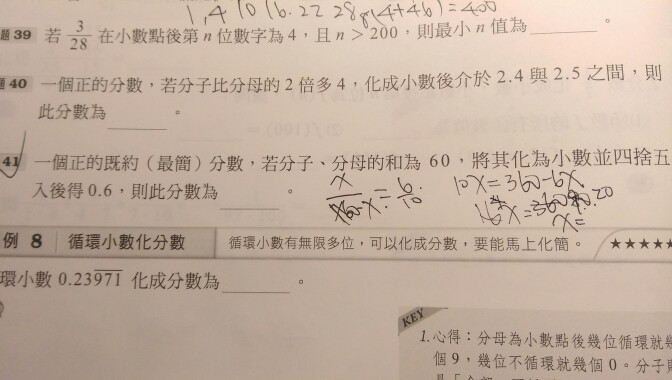 1,4 10 16. 22 28
題 39 若 3/28 在小數點後第 n 位數字為 4，且 n > 200，則最小 n 值為______。
題 40 一個正的分數，若分子比分母的 2 倍多 4，化成小數後介於 2.4 與 2.5 之間，則
此分數為______。
41 一個正的既約（最簡）分數，若分子、分母的和為 60，將其化為小數並四捨五
入後得 0.6，則此分數為______。
10x=360-6x
x=
例 8 循環小數化分數 循環小數有無限多位，可以化成分數，要能馬上化簡。 ★★★★★
環小數 0.239\overline{71} 化成分數為______。
KEY
1.心得：分母為小數點後幾位循環就幾
個 9，幾位不循環就幾個 0。分子